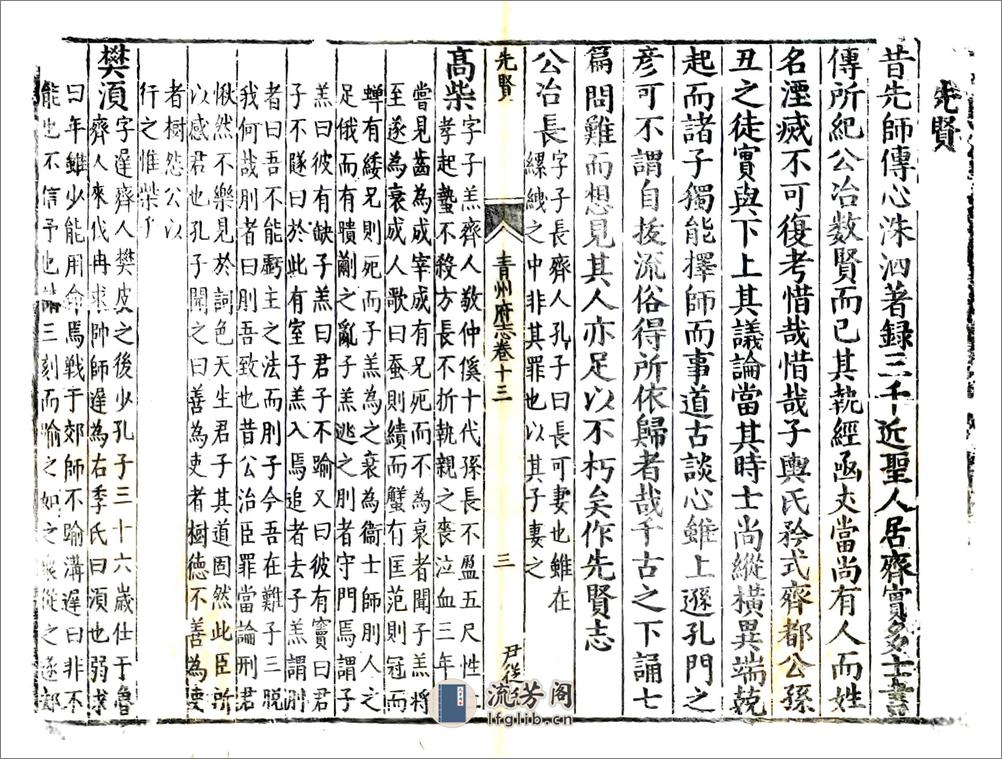 先賢
昔先師傳心洙泗著録三千近聖人居齊實多士
傳所紀公冶数賢而已其執經函丈當尚有人而姓
名湮滅不可復考惜哉惜哉子輿氏矜式齊都公孫
丑之徒實與下上其議論當其時士尚縱横異端
起而諸子獨能擇師而事道古談心雖上遜孔門之
彦可不謂自拔流俗得所依歸者哉千古之下誦七
篇問難而想見其人亦足以不朽矣作先賢志
公冶長字子長齊人孔子曰長可妻也雖在
縲絏之中非其罪也以其子妻之
先賢
青州府志卷十三
三
尹從
高柴字子羔齊人敬仲傒十代孫長不盈五尺性
孝起蟄不殺方長不折執親之喪泣血三年
嘗見齒為成宰成有兄死而不為衰者聞子羔將
至遂為衰成人歌曰蚕則績而蟹有匡范則冠而
蟬有緌兄則死而子羔為之衰為衞士師刖人之
足俄而有蒯聵之亂子羔逃之刖者守門焉謂子
羔曰彼有缺子羔曰君子不踰又曰彼有竇曰君
子不隧曰於此有室子羔入焉追者去子羔謂刖
者曰吾不能虧主之法而刖子今吾在難子三脱
我何哉刖者曰刖吾致也昔公治臣罪當論刑君
愀然不樂見於詞色天生君子其道固然此臣所
以感君也孔子聞之曰善為吏者樹德不善為吏
者樹怨公以
行之惟柴乎
樊須字遲齊人樊皮之後少孔子三十六歳仕于魯
齊人來伐冉求帥師遲為右季氏曰須也弱求
曰年雖少能用命焉戰于郊師不踰溝遲曰非不
能也不信子也請三刻而踰之如之衆從之遂
流芳阁
lfglib.cn